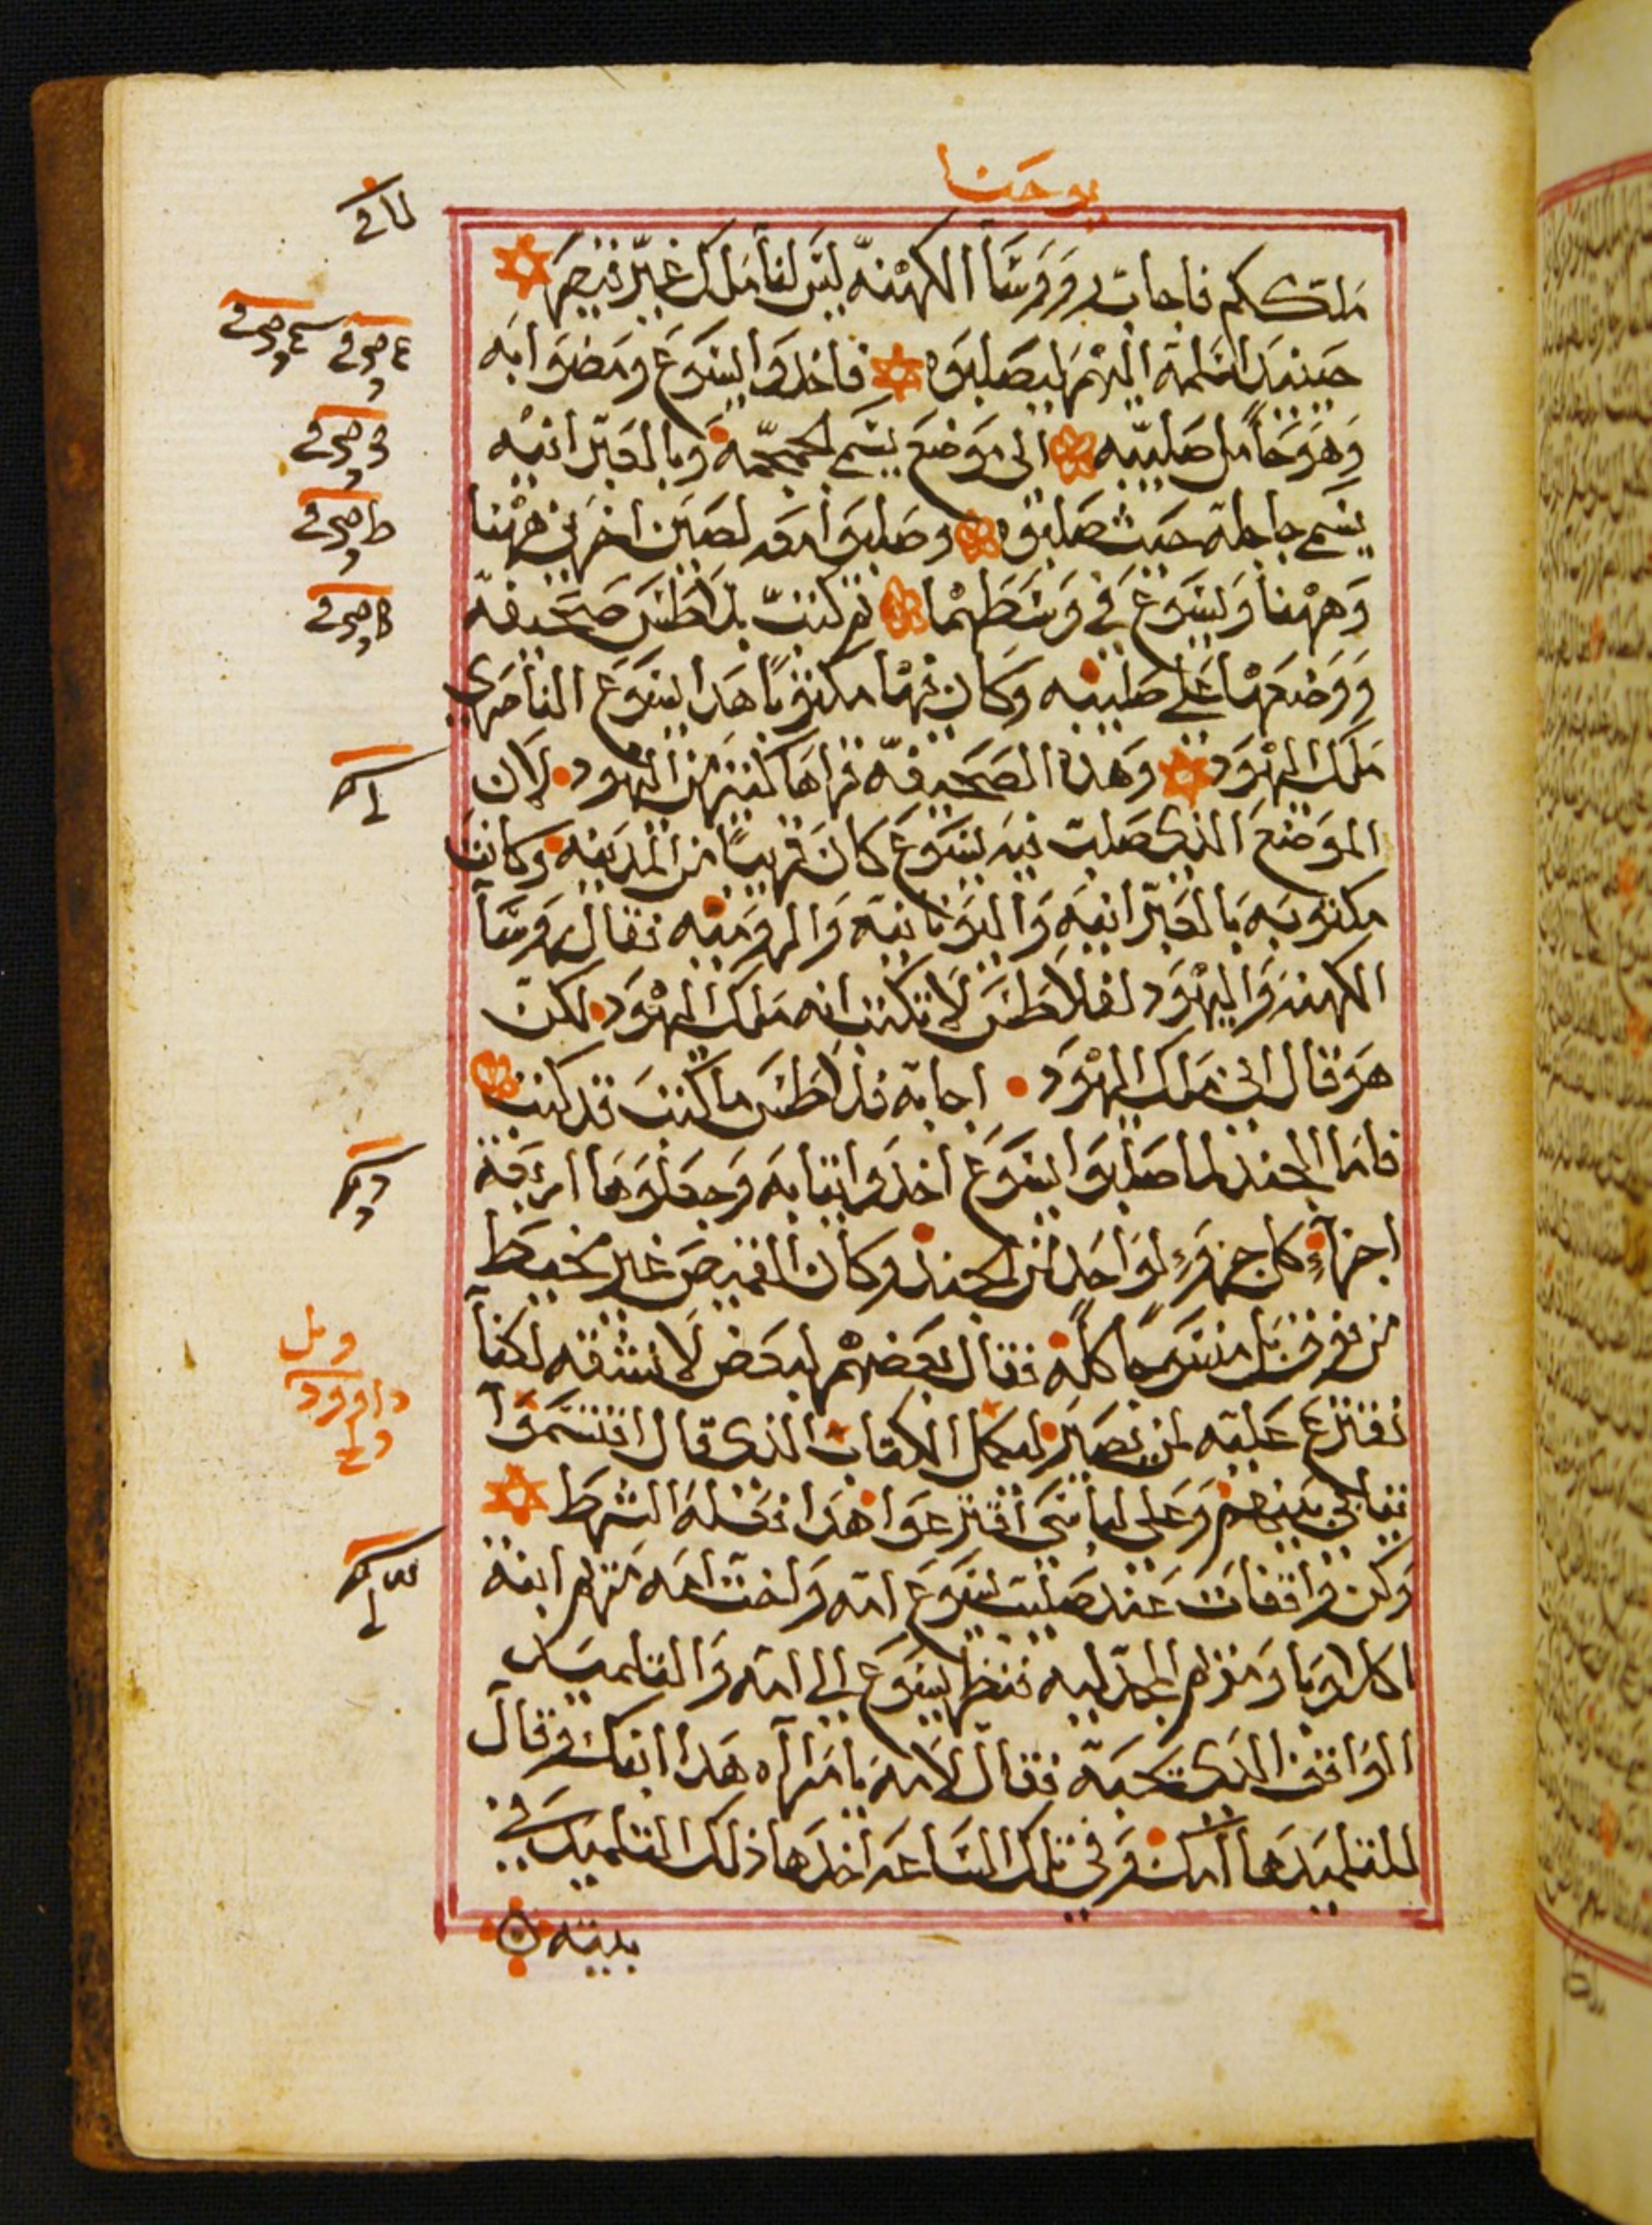 يوحنا
ملككم فاجابت رووسا الكهنة ليس لنا ملك غير قيصر
حينيد اسلمه اليهم ليصلبوه فاخدوا يسوع ومضوا به
وهو حامل صليبه الى موضع يسم الجمجمة وبالعبرانيه
يسم جاجلة حيث صلبوه وصلبوا معه لصين اخرين ههنا
وههنا ويسوع في وسطهما ثم كتب بلاطس صحيفة
ووضعها على صليبه وكان فيها مكتوبا هدا يسوع الناصري
ملك اليهود وهده الصحيفة قراها كثير من اليهود لان
الموضع الذي صلب فيه يسوع كان قريبا من المدينه وكانت
مكتوبه بالعبرانيه واليونانيه والروميه فقال روسا
الكهنه واليهود لفلاطس لا تكتب انه ملك اليهود لكن
هو قال اني ملك اليهود اجابه فلاطس ما كتبت قد كتبت
فاما الجند لما صلبوا يسوع اخدوا ثيابه وجعلوها اربعة
اجزاء كل جزو لواحد من الجند وكان القميص غير مخيط
من فوق بل منسوجا كله فقال بعضهم لبعض لا نشقه لكنا
نقترع عليه لمن يصير ليكمل الكتاب الذي قال اقتسموا
ثيابي بينهم وعلى لباسي اقترعوا هدا فعله الشرط
وكن واقفات عند صليب يسوع امه واخت امه مريم ابنة
اكلاوبا ومريم المجدليه فنظر يسوع الى امه والتلميد
الواقف الدي يحبه فقال لامه يا امراه هدا ابنك وقال
للتلميد ها امك وفي تلك الساعه اخدها ذلك التلميد في
بيته
داوود